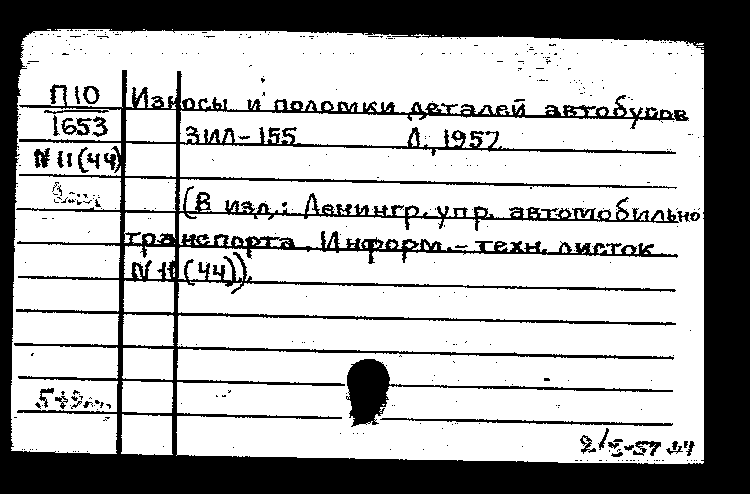 П10
1653
N 11(44)
Износы и поломки деталей автобусов
ЗИЛ-155 Л., 1957
(В изд.: Ленингр. упр. автомобильно
транспорта. Информ.-техн. листок
N 11 (44)).